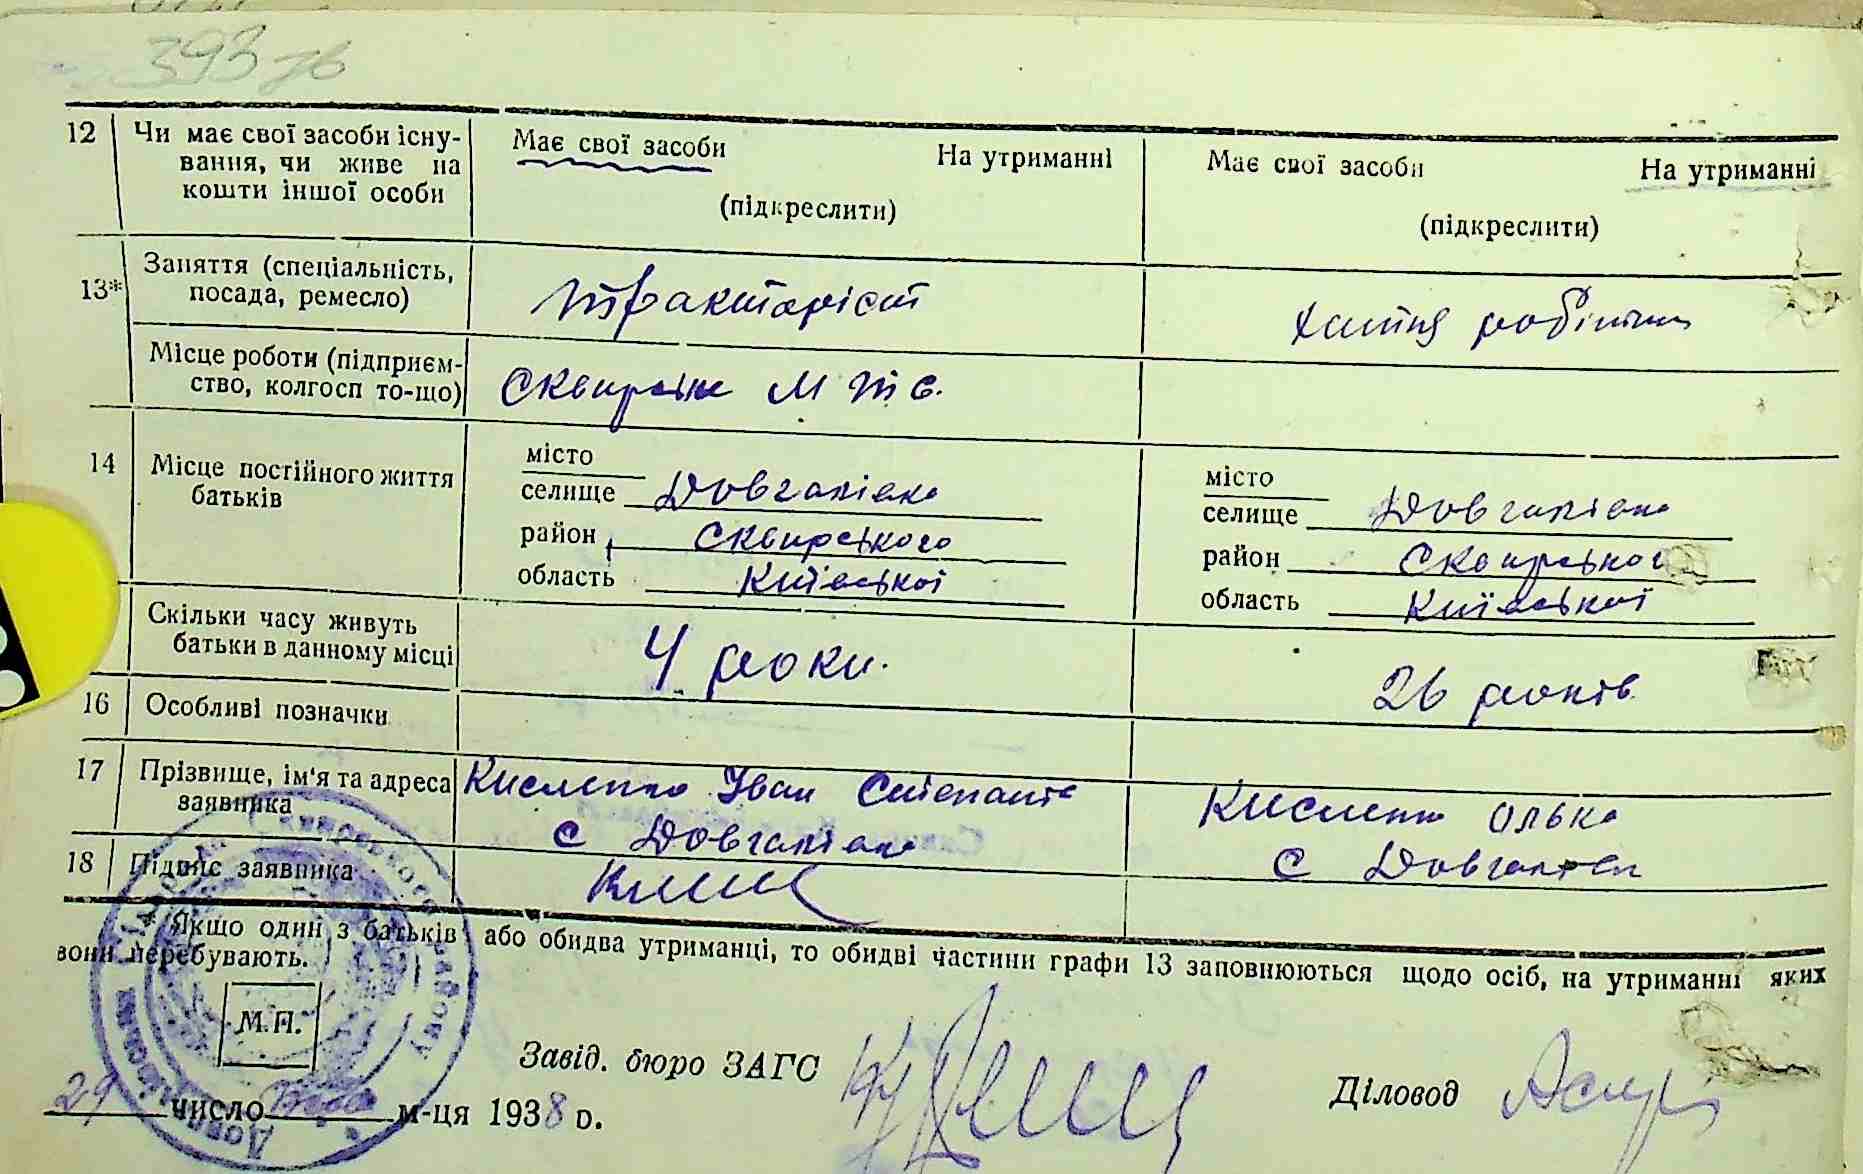 393 зв
12 Чи має свої засоби існу-
вання, чи живе на
кошти іншої особи
Має свої засоби На утриманні
(підкреслити)
Має свої засоби На утриманні
(підкреслити)
13* Заняття (спеціальність,
посада, ремесло)
тракторіст
хатня робітн
Місце роботи (підприєм-
ство, колгосп то-що)
Сквирське М Т С.
14 Місце постійного життя
батьків
місто
селище Довгалівка
район Сквирського
область Київської
місто
селище Довгалівка
район Сквирського
область Київської
Скільки часу живуть
батьки в данному місці
4 роки.
26 років.
16 Особливі позначки
17 Прізвище, ім'я та адреса
заявника
Кисленко Іван Степанов
с Довгалівка
Кисленко Олька
с Довгалівка
18 Підпис заявника
Якщо один з батьків або обидва утриманці, то обидві частини графи 13 заповнюються щодо осіб, на утриманні яких
вони перебувають.
М. П.
Завід. бюро ЗАГС
Діловод
29 число м-ця 1938 р.